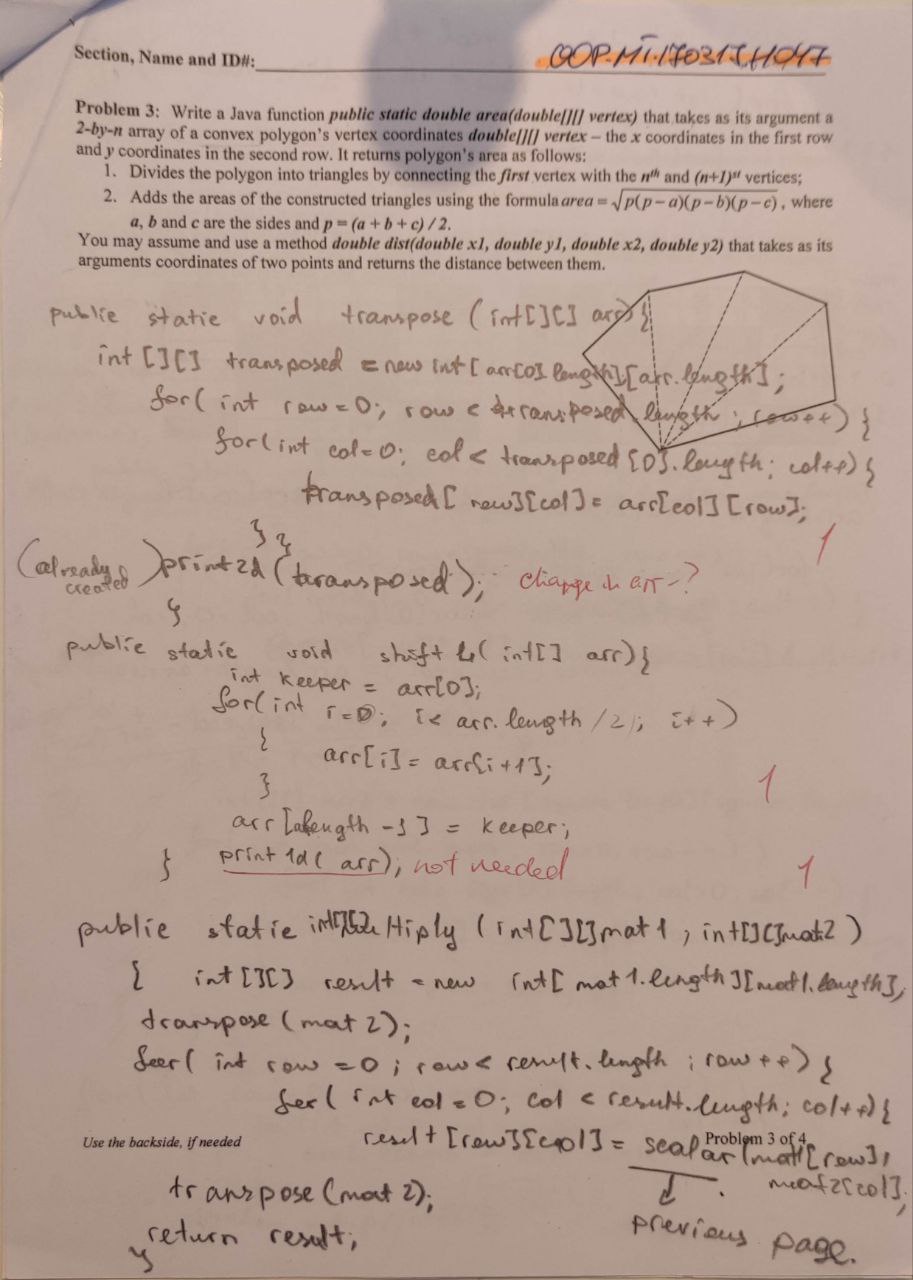 Section, Name and ID#:
Problem 3: Write a Java function public static double area(double[][] vertex) that takes as its argument a
2-by-n array of a convex polygon's vertex coordinates double[][] vertex – the x coordinates in the first row
and y coordinates in the second row. It returns polygon's area as follows:
1. Divides the polygon into triangles by connecting the first vertex with the nth and (n+1)st vertices;
2. Adds the areas of the constructed triangles using the formula area = √p(p – a)(p – b)(p – c) , where
a, b and c are the sides and p = (a + b + c) / 2.
You may assume and use a method double dist(double x1, double y1, double x2, double y2) that takes as its
arguments coordinates of two points and returns the distance between them.
public static void transpose (int[][] arr) {
int [][] transposed = new int [arr[0].length][arr.length];
for( int row = 0; row < transposed.length ; row++) {
for(int col=0; col < transposed [0].length; col++) {
transposed[row][col] = arr[col][row];
} }
1
(already created) print2d (transposed); change in arr -?
}
public static void shift (int[] arr) {
int keeper = arr[0];
for(int i=0; i< arr.length /2; i++)
{
arr[i] = arr[i+1];
}
1
arr [length -1] = keeper;
} print 1d( arr); not needed
1
public static int[][] multiply (int[][] mat1, int[][] mat2)
{ int [][] result = new int[ mat1.length][mat1.length];
transpose (mat 2);
for( int row = 0 ; row < result.length ; row ++) {
for( int col = 0; col < result.length; col++) {
result [row][col] = scalar(mat1[row],
mat2[col];
Use the backside, if needed
Problem 3 of 4
transpose (mat 2);
return result;
}
previous page.